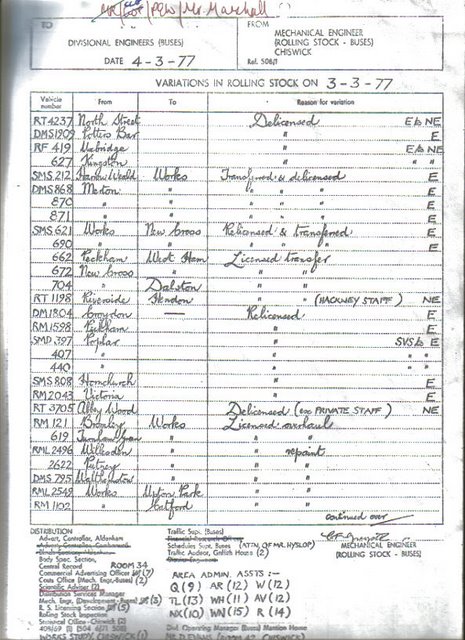 MR /PEW/Mr Marshall
TO
DIVISIONAL ENGINEERS (BUSES)
DATE 4-3-77
FROM
MECHANICAL ENGINEER
(ROLLING STOCK - BUSES)
CHISWICK
Ref. 508/1
VARIATIONS IN ROLLING STOCK ON 3-3-77
Vehicle number From To Reason for variation
RT 4237 North Street Delicensed E/b NE
DMS 1909 Potters Bar " E
RF 419 Uxbridge " E/b NE
627 Kingston " " "
SMS 212 Harrow Weald Works Transferred & delicensed E
DMS 868 Merton " " " " E
870 " " " " " E
871 " " " " " E
SMS 621 Works New Cross Relicensed & transferred E
690 " " " " " E
662 Peckham West Ham Licensed transfer
672 New Cross " " "
704 " Dalston " "
RT 1198 Riverside Hendon " " (HACKNEY STAFF) NE
DM 1804 Croydon — Relicensed E
RM 1598 Peckham " E
SMD 397 Poplar " SVS/b E
407 " " " "
440 " " " "
SMS 808 Hornchurch " E
RM 2043 Victoria " E
RT 3705 Abbey Wood Delicensed (ex PRIVATE STAFF) NE
RM 121 Bromley Works Licensed overhaul
619 Turnham Green " " "
RML 2496 Willesden " " repaint
2622 Putney " " "
DMS 795 Walthamstow " " "
RML 2549 Works Upton Park " "
RM 1102 " Catford " "
continued over
DISTRIBUTION
Advert, Controller, Aldenham
Body Spec. Section,
Central Record ROOM 34
Commercial Advertising Officer (7)
Costs Office (Mech. Engr.-Buses) (2)
Scientific Adviser (2)
Distribution Services Manager
Mech. Engr. (Development - Buses) (3)
R. S. Licensing Section (5)
Rolling Stock Inspection
Statistical Office - Chiswick (2)
409/69 (1) (504 6/71 508)
WORKS STUDY, CHISWICK (1)
Traffic Supt. (Buses)
Financial Research Officer
Schedules Supt. Buses (ATTN. OF MR. HYSLOP)
Traffic Auditor, Griffith House (2)
AREA ADMIN. ASSTS :-
Q (9) AR (12) W (12)
TL (13) WH (11) AV (12)
NX (10) WN (15) R (14)
Div. Operating Manager (Buses) Mansion House
MECHANICAL ENGINEER
(ROLLING STOCK - BUSES)